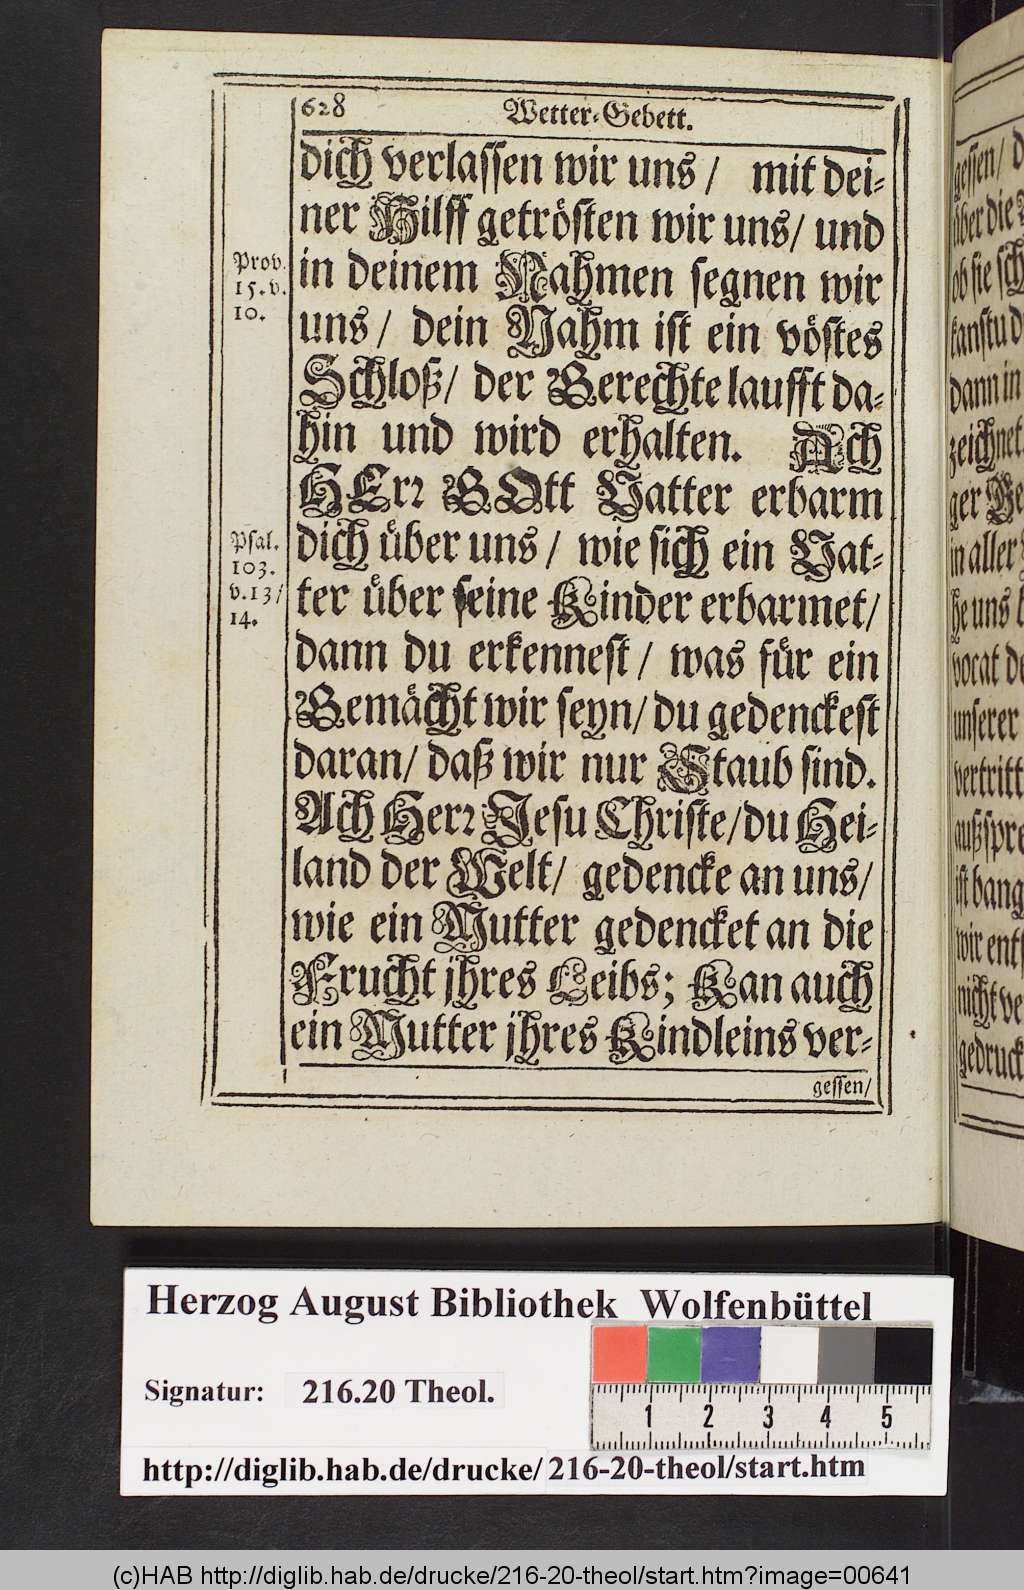 628
Wetter-Gebett.
dich verlassen wir uns/ mit dei-
ner Hilff getrösten wir uns/ und
in deinem Nahmen segnen wir
uns/ dein Nahm ist ein vöstes
Schloß/ der Gerechte laufft da-
hin und wird erhalten. Ach
HErr GOtt Vatter erbarm
dich über uns/ wie sich ein Vat-
ter über seine Kinder erbarmet/
dann du erkennest/ was für ein
Gemächt wir seyn/ du gedenckest
daran/ daß wir nur Staub sind.
Ach Herr Jesu Christe/ du Hei-
land der Welt/ gedencke an uns/
wie ein Mutter gedencket an die
Frucht jhres Leibs; Kan auch
ein Mutter jhres Kindleins ver-
gessen/
Prov.
15. v.
10.
Psal.
103.
v. 13/
14.
gessen/ d
über die
ob sie sch
kanstu d
dann in
zeichnet
ger Ge
in aller
he uns
vocat de
unserer
vertritt
außspre
ist bang
wir ent
nicht ve
gedruck
Herzog August Bibliothek Wolfenbüttel
Signatur: 216.20 Theol.
1 2 3 4 5
http://diglib.hab.de/drucke/216-20-theol/start.htm
(c)HAB http://diglib.hab.de/drucke/216-20-theol/start.htm?image=00641